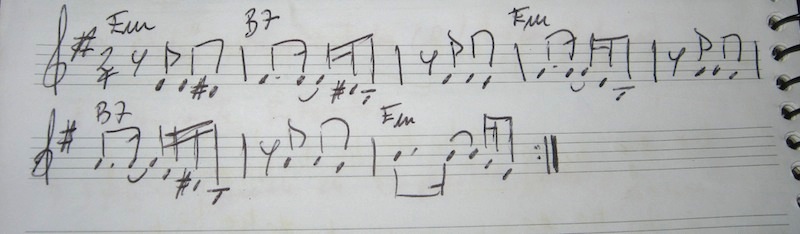 Em B7 Em
2 4
B7 Em